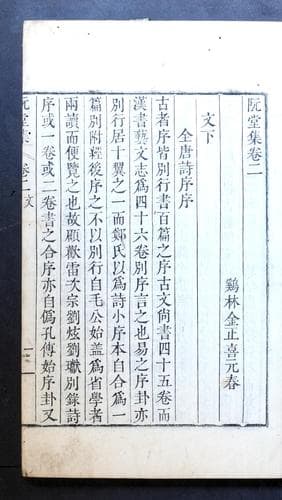 阮堂集卷二
鷄林金正喜元春
文下
全唐詩序序
古者序皆別行書百篇之序古文尙書四十五卷而
漢書藝文志爲四十六卷別序言之也易之序卦亦
別行居十翼之一而鄭氏以爲詩小序本自合爲一
篇別附經後序之不以別行自毛公始盖爲省學者
兩讀而便覽之也故顧歡雷次宗劉炫劉瓛別錄詩
序或一卷或二卷書之合序亦自僞孔傳始序卦又
阮堂集
卷二 文
一